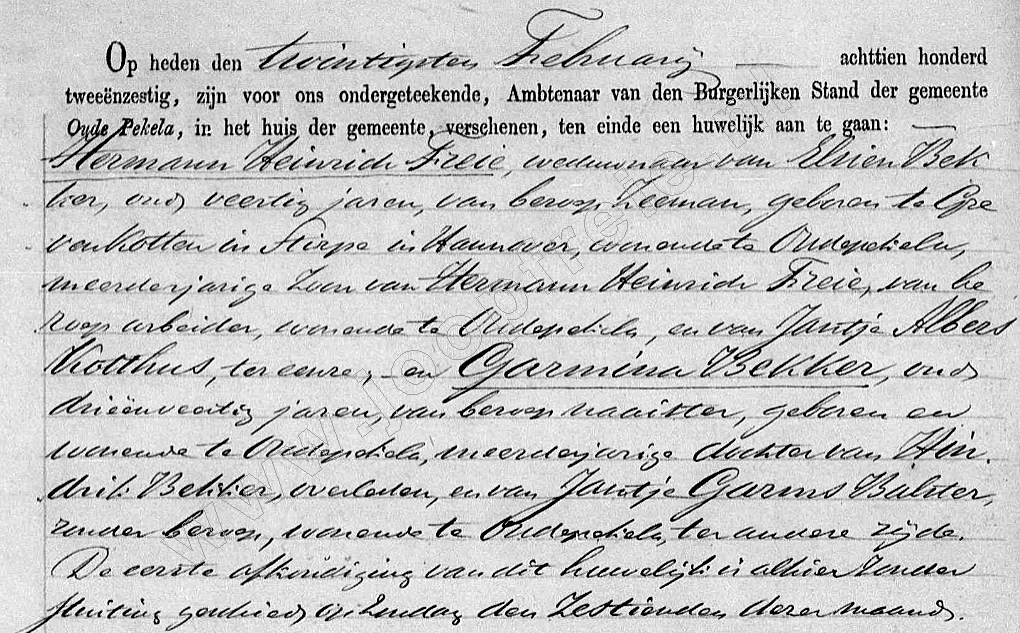 Op heden den twintigsten Februarij achttien honderd
tweeënzestig, zijn voor ons ondergeteekende, Ambtenaar van den Burgerlijken Stand der gemeente
Oude Pekela, in het huis der gemeente, verschenen, ten einde een huwelijk aan te gaan:
Hermann Heinrich Freie, weduwnaar van Elsien Bek
ker, oud veertig jaren, van beroep zeeman, geboren te Gre
venkotten in Stirpe in Hannover, wonende te Oudepekela,
meerderjarige zoon van Hermann Heinrich Freie, van be
roep arbeider, wonende te Oudepekela, en van Jantje Albers
Kotthus, ter eenre; en Garmina Bekker, oud
drieënveertig jaren, van beroep naaister, geboren en
wonende te Oudepekela, meerderjarige dochter van Hin
drik Bekker, overleden, en van Jantje Garms Bulster,
zonder beroep, wonende te Oudepekela, ter andere zijde.
De eerste afkondiging van dit huwelijk is alhier zonder
stuiting geschied op Zondag den zestienden dezer maand.